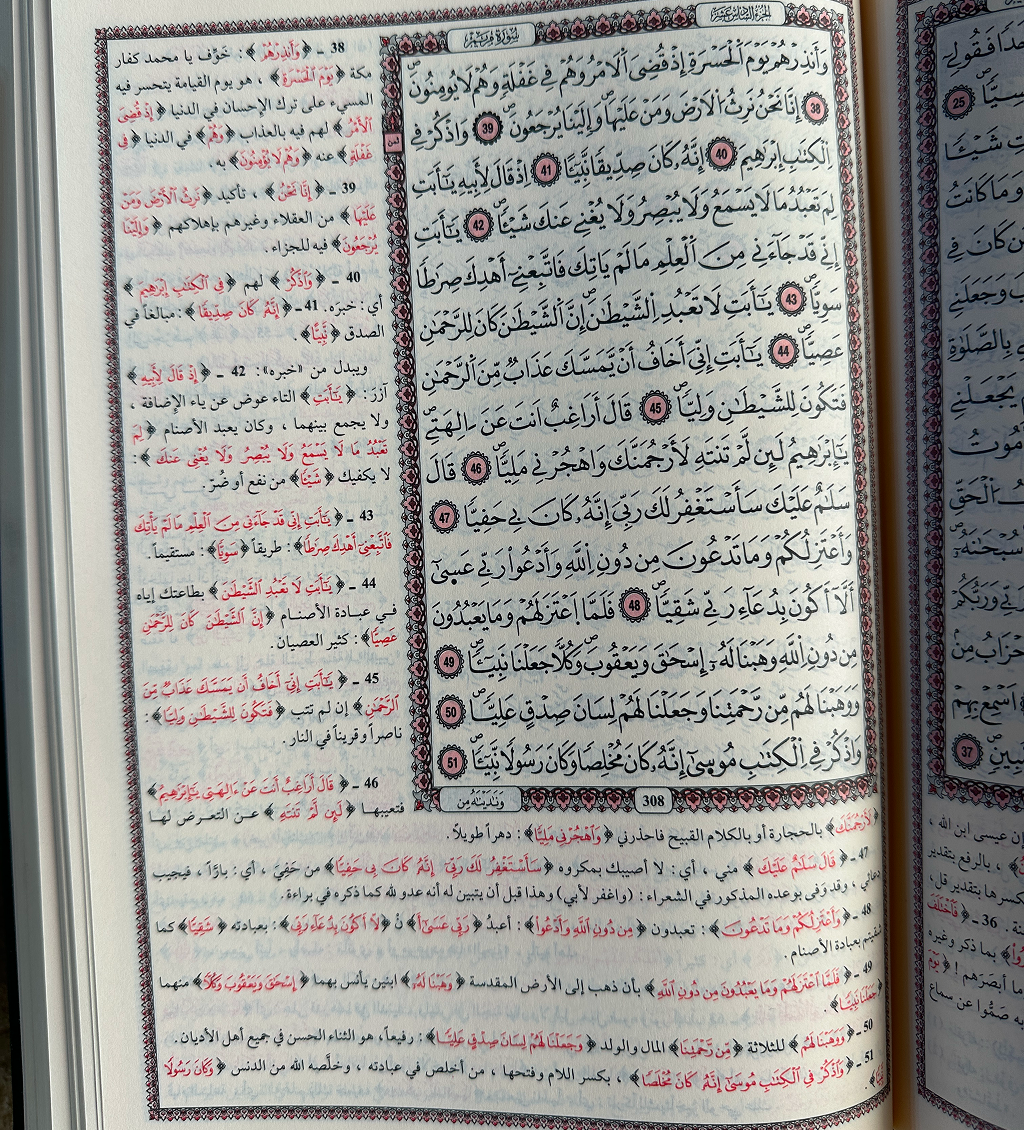 الجزء السادس عشر
سورة مريم
وَأَنذِرْهُمْ يَوْمَ اَ۬لْحَسْرَةِ إِذْ قُضِيَ اَ۬لَامْرُ وَهُمْ فِي غَفْلَةٖ وَهُمْ لَا يُومِنُونَۖ
38 إِنَّا نَحْنُ نَرِثُ اُ۬لَارْضَ وَمَنْ عَلَيْهَاۖ وَإِلَيْنَا يُرْجَعُونَۖ 39 وَاذْكُرْ فِي
اِ۬لْكِتَٰبِ إِبْرَٰهِيمَۖ 40 إِنَّهُۥ كَانَ صِدِّيقاٗ نَّبِيٓـٔاًۖ 41 اِذْ قَالَ لِأَبِيهِ يَٰٓأَبَتِ
لِمَ تَعْبُدُ مَا لَا يَسْمَعُ وَلَا يُبْصِرُ وَلَا يُغْنِي عَنكَ شَيْـٔاٗۖ 42 يَٰٓأَبَتِ
إِنِّي قَدْ جَآءَنِي مِنَ اَ۬لْعِلْمِ مَا لَمْ يَاتِكَ فَاتَّبِعْنِيٓ أَهْدِكَ صِرَٰطاٗ
سَوِيّاٗۖ 43 يَٰٓأَبَتِ لَا تَعْبُدِ اِ۬لشَّيْطَٰنَۖ إِنَّ اَ۬لشَّيْطَٰنَ كَانَ لِلرَّحْمَٰنِ
عَصِيّاٗۖ 44 يَٰٓأَبَتِ إِنِّيَ أَخَافُ أَنْ يَّمَسَّكَ عَذَابٞ مِّنَ اَ۬لرَّحْمَٰنِ
فَتَكُونَ لِلشَّيْطَٰنِ وَلِيّاٗۖ 45 قَالَ أَرَاغِبٌ اَنتَ عَنَ اٰلِهَتِے
يَٰٓإِبْرَٰهِيمُ لَئِن لَّمْ تَنتَهِ لَأَرْجُمَنَّكَ وَاهْجُرْنِي مَلِيّاٗۖ 46 قَالَ
سَلَٰمٌ عَلَيْكَ سَأَسْتَغْفِرُ لَكَ رَبِّيَ إِنَّهُۥ كَانَ بِے حَفِيّاٗ 47
وَأَعْتَزِلُكُمْ وَمَا تَدْعُونَ مِن دُونِ اِ۬للَّهِ وَأَدْعُواْ رَبِّے عَسَىٰٓ
أَلَّآ أَكُونَ بِدُعَآءِ رَبِّے شَقِيّاٗۖ 48 فَلَمَّا اَ۪عْتَزَلَهُمْ وَمَا يَعْبُدُونَ
مِن دُونِ اِ۬للَّهِ وَهَبْنَا لَهُۥٓ إِسْحَٰقَ وَيَعْقُوبَۖ وَكُلّاٗ جَعَلْنَا نَبِيٓـٔاٗۖ 49
وَوَهَبْنَا لَهُم مِّن رَّحْمَتِنَا وَجَعَلْنَا لَهُمْ لِسَانَ صِدْقٍ عَلِيّاٗۖ 50
وَاذْكُرْ فِي اِ۬لْكِتَٰبِ مُوسَىٰٓ إِنَّهُۥ كَانَ مُخْلِصاٗ وَكَانَ رَسُولاٗ نَّبِيٓـٔاٗۖ 51
308
وَنَٰدَيْنَٰهُ مِن
ثمن
38 ـ ﴿وَأَنذِرْهُمْ﴾ : خَوِّف يا محمد كفار
مكة ﴿يَوْمَ الْحَسْرَةِ﴾ ، هو يوم القيامة يتحسر فيه
المسيء على ترك الإحسان في الدنيا ﴿إِذْ قُضِىَ
الْأَمْرُ﴾ لهم فيه بالعذاب ﴿وَهُمْ﴾ في الدنيا ﴿فِى
غَفْلَةٍ﴾ عنه ﴿وَهُمْ لَا يُؤْمِنُونَ﴾ به .
39 ـ ﴿إِنَّا نَحْنُ﴾ ، تأكيد ﴿نَرِثُ الْأَرْضَ وَمَنْ
عَلَيْهَا﴾ من العقلاء وغيرهم بإهلاكهم ﴿وَإِلَيْنَا
يُرْجَعُونَ﴾ فيه للجزاء .
40 ـ ﴿وَاذْكُرْ﴾ لهم ﴿فِى الْكِتَٰبِ إِبْرَٰهِيمَ﴾
أي : خبره . 41 ـ ﴿إِنَّهُ كَانَ صِدِّيقًا﴾ : مبالغاً في
الصدق ﴿نَّبِيًّا﴾ .
ويبدل من «خبره» : 42 ـ ﴿إِذْ قَالَ لِأَبِيهِ﴾
آزر : ﴿يَٰٓأَبَتِ﴾ التاء عوض عن ياء الإضافة ،
ولا يجمع بينهما ، وكان يعبد الأصنام ﴿لِمَ
تَعْبُدُ مَا لَا يَسْمَعُ وَلَا يُبْصِرُ وَلَا يُغْنِى عَنكَ﴾ :
لا يكفيك ﴿شَيْئًا﴾ من نفع أو ضُرّ .
43 ـ ﴿يَٰٓأَبَتِ إِنِّى قَدْ جَآءَنِى مِنَ الْعِلْمِ مَا لَمْ يَأْتِكَ
فَاتَّبِعْنِىٓ أَهْدِكَ صِرَٰطًا﴾ : طريقاً ﴿سَوِيًّا﴾ : مستقيماً .
44 ـ ﴿يَٰٓأَبَتِ لَا تَعْبُدِ الشَّيْطَٰنَ﴾ بطاعتك إياه
في عبادة الأصنام ﴿إِنَّ الشَّيْطَٰنَ كَانَ لِلرَّحْمَٰنِ
عَصِيًّا﴾ : كثير العصيان .
45 ـ ﴿يَٰٓأَبَتِ إِنِّىٓ أَخَافُ أَن يَمَسَّكَ عَذَابٌ مِّنَ
الرَّحْمَٰنِ﴾ إن لم تتب ﴿فَتَكُونَ لِلشَّيْطَٰنِ وَلِيًّا﴾ :
ناصراً وقريناً في النار .
46 ـ ﴿قَالَ أَرَاغِبٌ أَنتَ عَنْ ءَالِهَتِى يَٰٓإِبْرَٰهِيمُ﴾
فتعيبها ﴿لَئِن لَّمْ تَنتَهِ﴾ عن التعرض لها
﴿لَأَرْجُمَنَّكَ﴾ بالحجارة أو بالكلام القبيح فاحذرني ﴿وَاهْجُرْنِى مَلِيًّا﴾ : دهراً طويلاً .
47 ـ ﴿قَالَ سَلَٰمٌ عَلَيْكَ﴾ مني ، أي : لا أصيبك بمكروه ﴿سَأَسْتَغْفِرُ لَكَ رَبِّىٓ إِنَّهُ كَانَ بِى حَفِيًّا﴾ من حَفِيَ ، أي : بارّاً ، فيجيب
دعائي ، وقد وَفى بوعده المذكور في الشعراء : (واغفر لأبي) وهذا قبل أن يتبين له أنه عدو لله كما ذكره في براءة .
48 ـ ﴿وَأَعْتَزِلُكُمْ وَمَا تَدْعُونَ﴾ : تعبدون ﴿مِن دُونِ اللَّهِ وَأَدْعُوا﴾ : أعبدُ ﴿رَبِّى عَسَىٰٓ أَ﴾ نْ ﴿لَّآ أَكُونَ بِدُعَآءِ رَبِّى﴾ : بعبادته ﴿شَقِيًّا﴾ كما
شقيتم بعبادة الأصنام .
49 ـ ﴿فَلَمَّا اعْتَزَلَهُمْ وَمَا يَعْبُدُونَ مِن دُونِ اللَّهِ﴾ بأن ذهب إلى الأرض المقدسة ﴿وَهَبْنَا لَهُ﴾ ابنين يأنس بهما ﴿إِسْحَٰقَ وَيَعْقُوبَ وَكُلًّا﴾ منهما
﴿جَعَلْنَا نَبِيًّا﴾ .
50 ـ ﴿وَوَهَبْنَا لَهُم﴾ للثلاثة ﴿مِّن رَّحْمَتِنَا﴾ المال والولد ﴿وَجَعَلْنَا لَهُمْ لِسَانَ صِدْقٍ عَلِيًّا﴾ : رفيعاً ، هو الثناء الحسن في جميع أهل الأديان .
51 ـ ﴿وَاذْكُرْ فِى الْكِتَٰبِ مُوسَىٰٓ إِنَّهُ كَانَ مُخْلَصًا﴾ ، بكسر اللام وفتحها ، من أخلص في عبادته ، وخلَّصه الله من الدنس ﴿وَكَانَ رَسُولًا
نَّبِيًّا﴾ .
25
وَمَا كَانَتْ
مَن كَانَ فِي
وَجَعَلَنِي
بِالصَّلَوٰةِ
يَجْعَلْنِي
أَمُوتُ
اُ۬لْحَقِّ
سُبْحَٰنَهُۥٓ
رَبِّے وَرَبُّكُمْ
أَسْمِعْ بِهِمْ
37
عيسى ابن الله ،
، بالرفع بتقدير
بتقدير قل ،
36 ـ ﴿فَاخْتَلَفَ
بما ذكر وغيره
ما أبصَرَهم ! ﴿يَوْمَ
صَمُّوا عن سماع